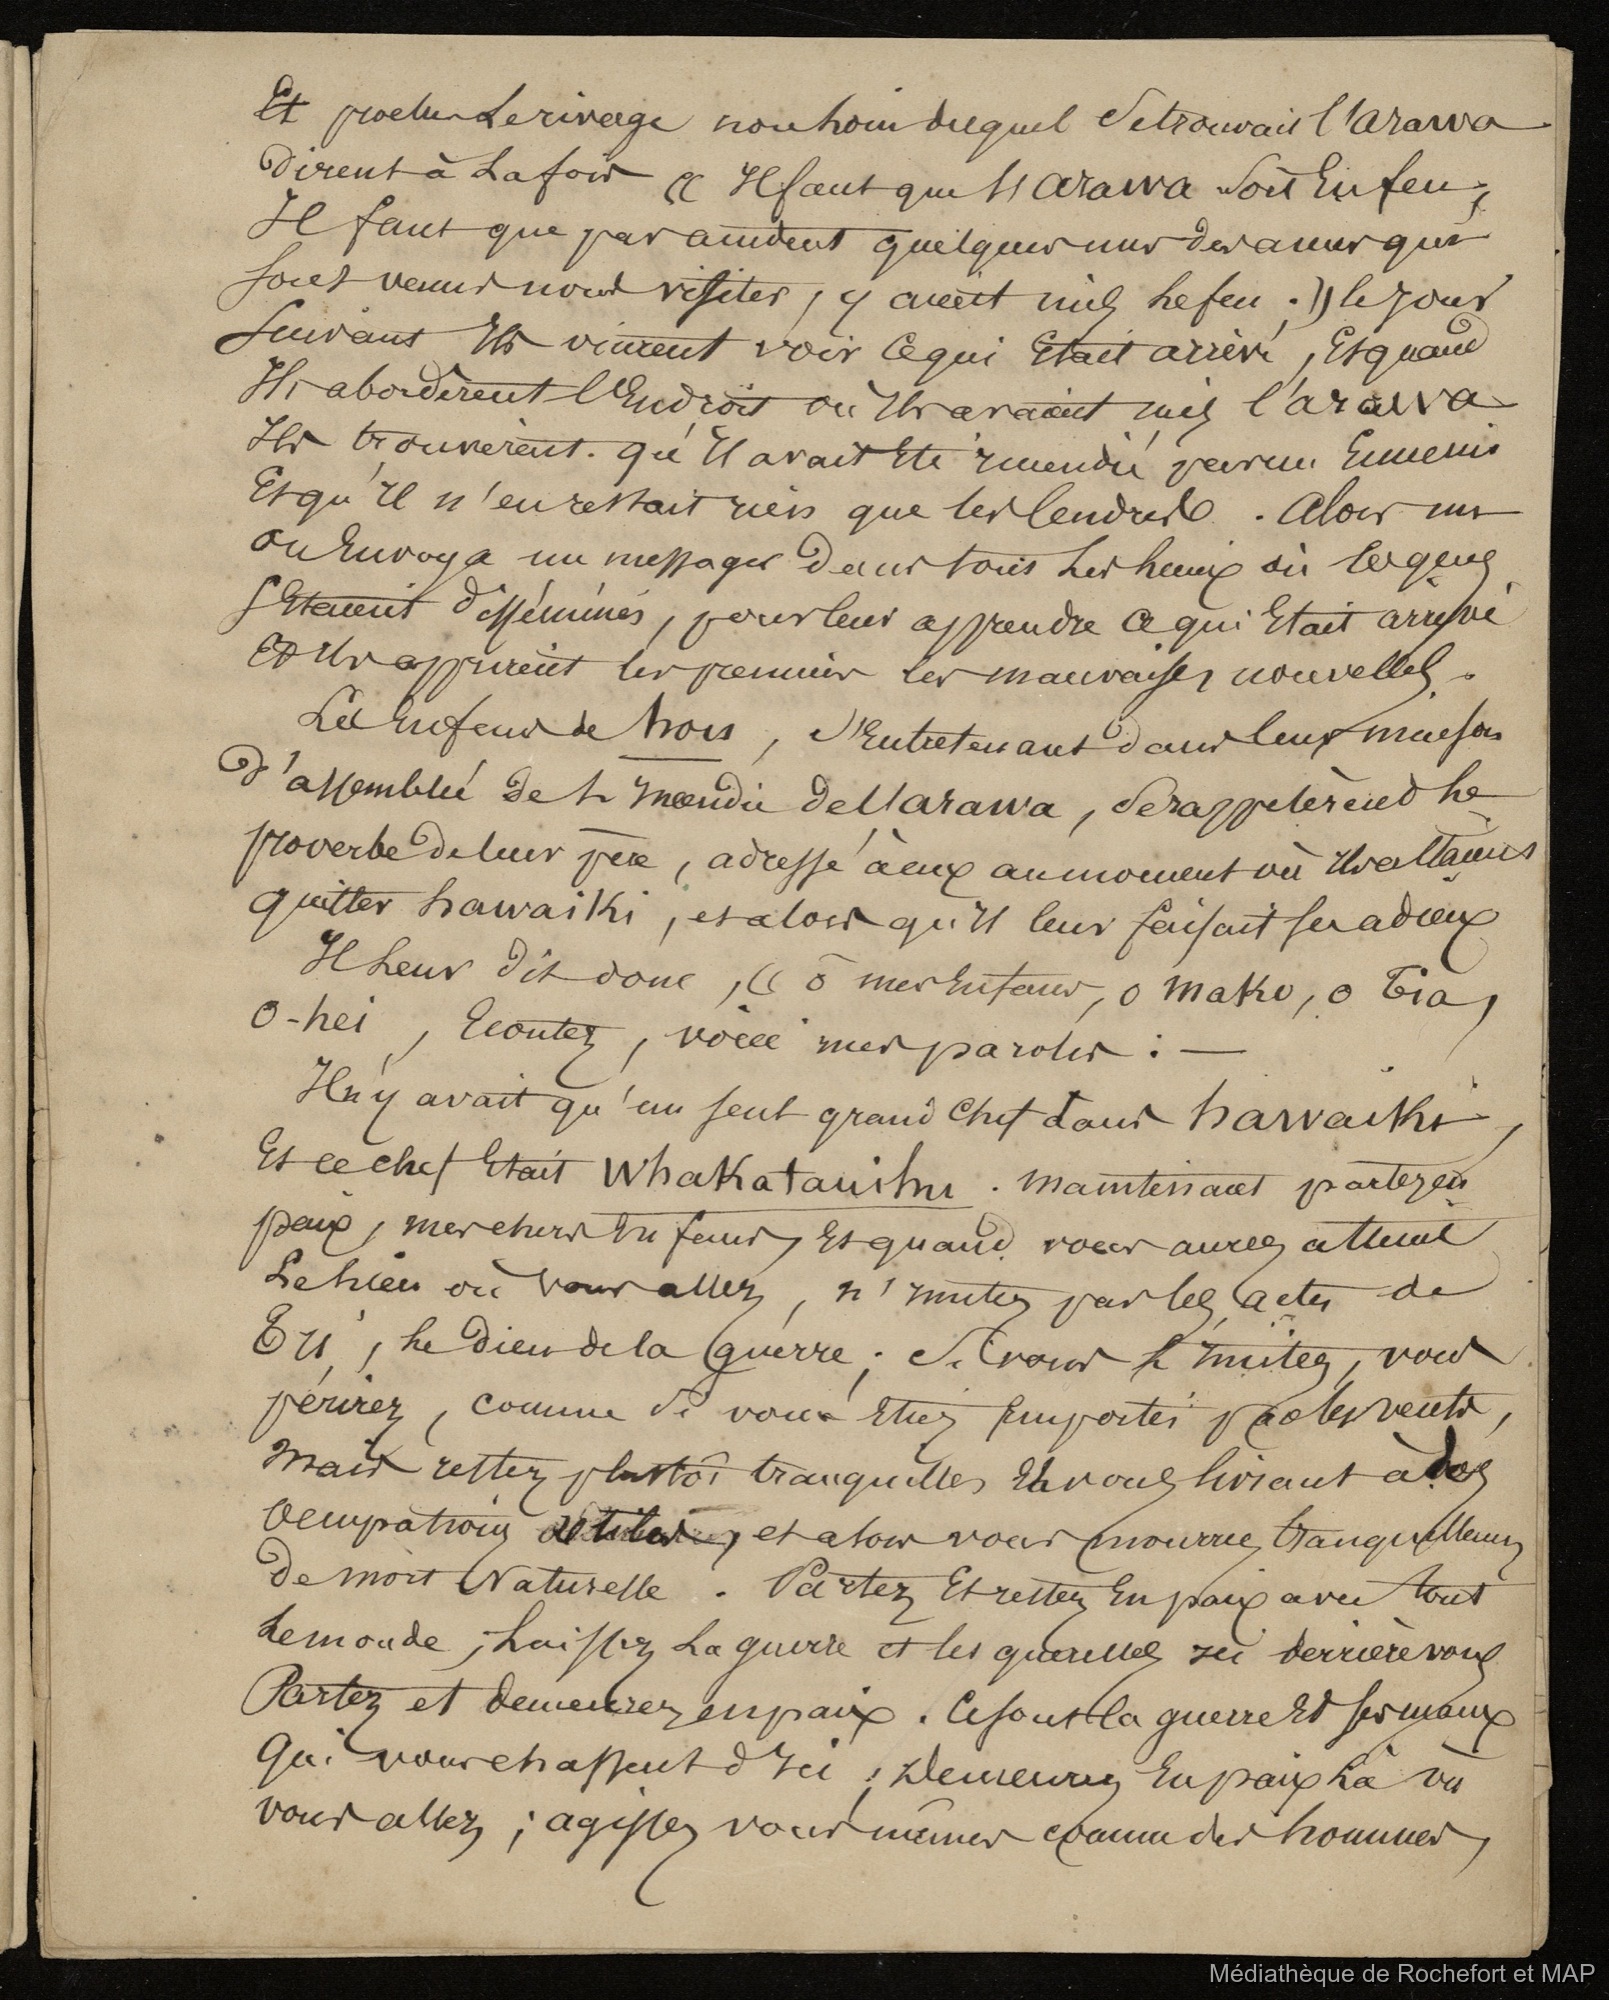 Et proche le rivage non loin duquel se trouvait l'arawa
Dirent à la fois « Il faut que l'arawa soit En feu,
Il faut que par accident quelques uns des amis qui
sont venus nous visiter, y aient mis le feu. » le jour
suivant Ils vinrent voir ce qui Etait arrivé, Et quand
Ils abordèrent l'Endroit où Ils avaient mis l'arawa
Ils trouvèrent. qu'Il avait Eté Incendié par un Ennemi
Et qu'Il n'en restait rien que les Cendres. Alors
on Envoya un messager Dans tous les lieux où les gens
s'Etaient disséminés, pour leur apprendre ce qui Etait arrivé
Et Ils apprirent les premiers les mauvaises nouvelles.
Les Enfans de hou, s'Entretenant dans leur maison
d'assemblée De l'Incendie de l'arawa, se rappelèrent le
proverbe de leur père, adressé à eux au moment où Ils allaient
quitter hawaiki, et alors qu'Il leur faisait ses adieux
Il leur dit donc, « ô mes Enfans, o mako, o Tia,
o-hei, Ecoutez, voici mes paroles : —
Il n'y avait qu'un seul grand chef dans hawaiki,
Et ce chef Etait Whakatauihu. maintenant partez en
paix, mes chers Enfans, Et quand vous aurez atteint
Le lieu où vous allez, n'Imitez pas les actes de
Tu, le Dieu de la guerre ; Si vous l'Imitez, vous
périrez, comme si vous Etiez Emportés par les vents,
Mais restez plustôt tranquilles En vous livrant à des
occupations utiles, et alors vous mourrez tranquillement
De mort Naturelle. Partez Et restez En paix avec tout
Le monde, Laissez La guerre et les querelles Ici derrière vous
Partez et demeurez en paix. Ce sont la guerre Et ses maux
Qui vous chassent d'Ici, Demeurez En paix Là où
vous allez ; agissez vous mêmes comme des hommes,
Médiathèque de Rochefort et MAP